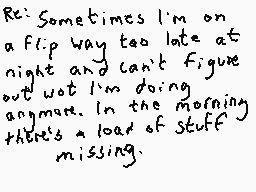 Re: Sometimes I'm on
a flip way too late at
night and can't figure
out wot I'm doing
anymore. In the morning
there's a load of stuff
missing.